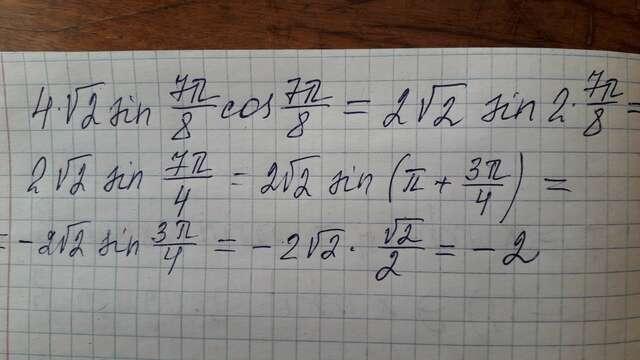 4·√2 sin 7π/8 cos 7π/8 = 2√2 sin 2·7π/8 =
2√2 sin 7π/4 = 2√2 sin (π + 3π/4) =
= -2√2 sin 3π/4 = -2√2 · √2/2 = -2